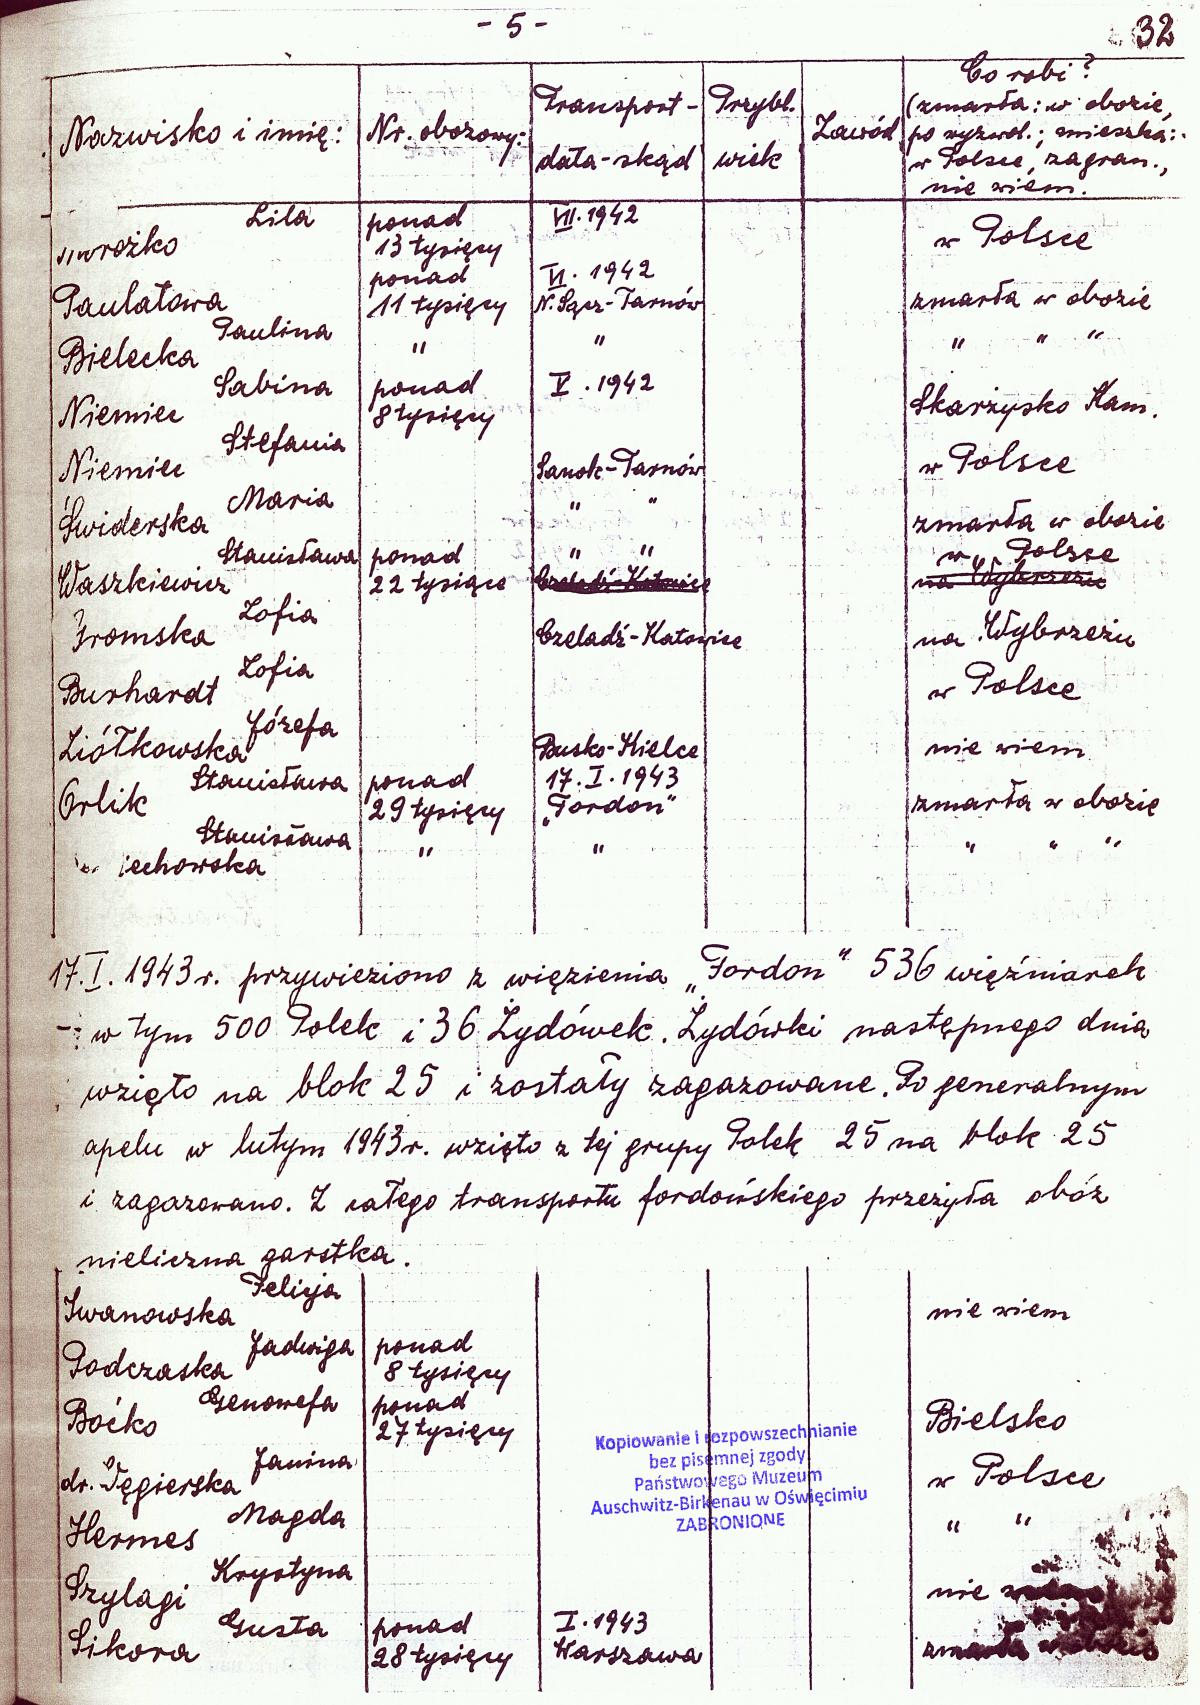 - 5 -
32
Nazwisko i imię: Nr. obozowy: Transport - data - skąd Przybl. wiek Zawód Co robi? (zmarła: w obozie, po wyzwol.; mieszka: w Polsce, zagran., nie wiem.
Lila ponad VII. 1942
13 tysięcy w Polsce
ponad VI. 1942
Paulatowa 11 tysięcy N. Sącz-Tarnów zmarła w obozie
Paulina
Bielecka " " " " "
Sabina ponad V. 1942
Niemiec 8 tysięcy Skarżysko Kam.
Stefania
Niemiec Sanok-Tarnów w Polsce
Maria " "
Świderska zmarła w obozie
Stanisława ponad " " w Polsce
Waszkiewicz 22 tysiące Czeladź-Katowice na Wybrzeżu
Zofia
Gromska Czeladź-Katowice na Wybrzeżu
Zofia
Burhardt w Polsce
Józefa
Ziółkowska Busko-Kielce nie wiem
Stanisława ponad 17. I. 1943
Orlik 29 tysięcy „Fordon" zmarła w obozie
Stanisława
iechowska " " " " "
17. I. 1943 r. przywieziono z więzienia „Fordon" 536 więźniarek
w tym 500 Polek i 36 Żydówek. Żydówki następnego dnia
wzięto na blok 25 i zostały zagazowane. Po generalnym
apelu w lutym 1943 r. wzięto z tej grupy Polek 25 na blok 25
i zagazowano. Z całego transportu fordońskiego przeżyła obóz
nieliczna garstka.
Felicja
Iwanowska nie wiem
Jadwiga ponad
Podczaska 8 tysięcy
Genowefa ponad
Boćko 27 tysięcy Bielsko
Janina
dr. Węgierska w Polsce
Magda
Hermes " "
Krystyna
Szylagi nie
Gusta ponad I. 1943
Sikora 28 tysięcy Warszawa zmarła w obozie
Kopiowanie i rozpowszechnianie
bez pisemnej zgody
Państwowego Muzeum
Auschwitz-Birkenau w Oświęcimiu
ZABRONIONE